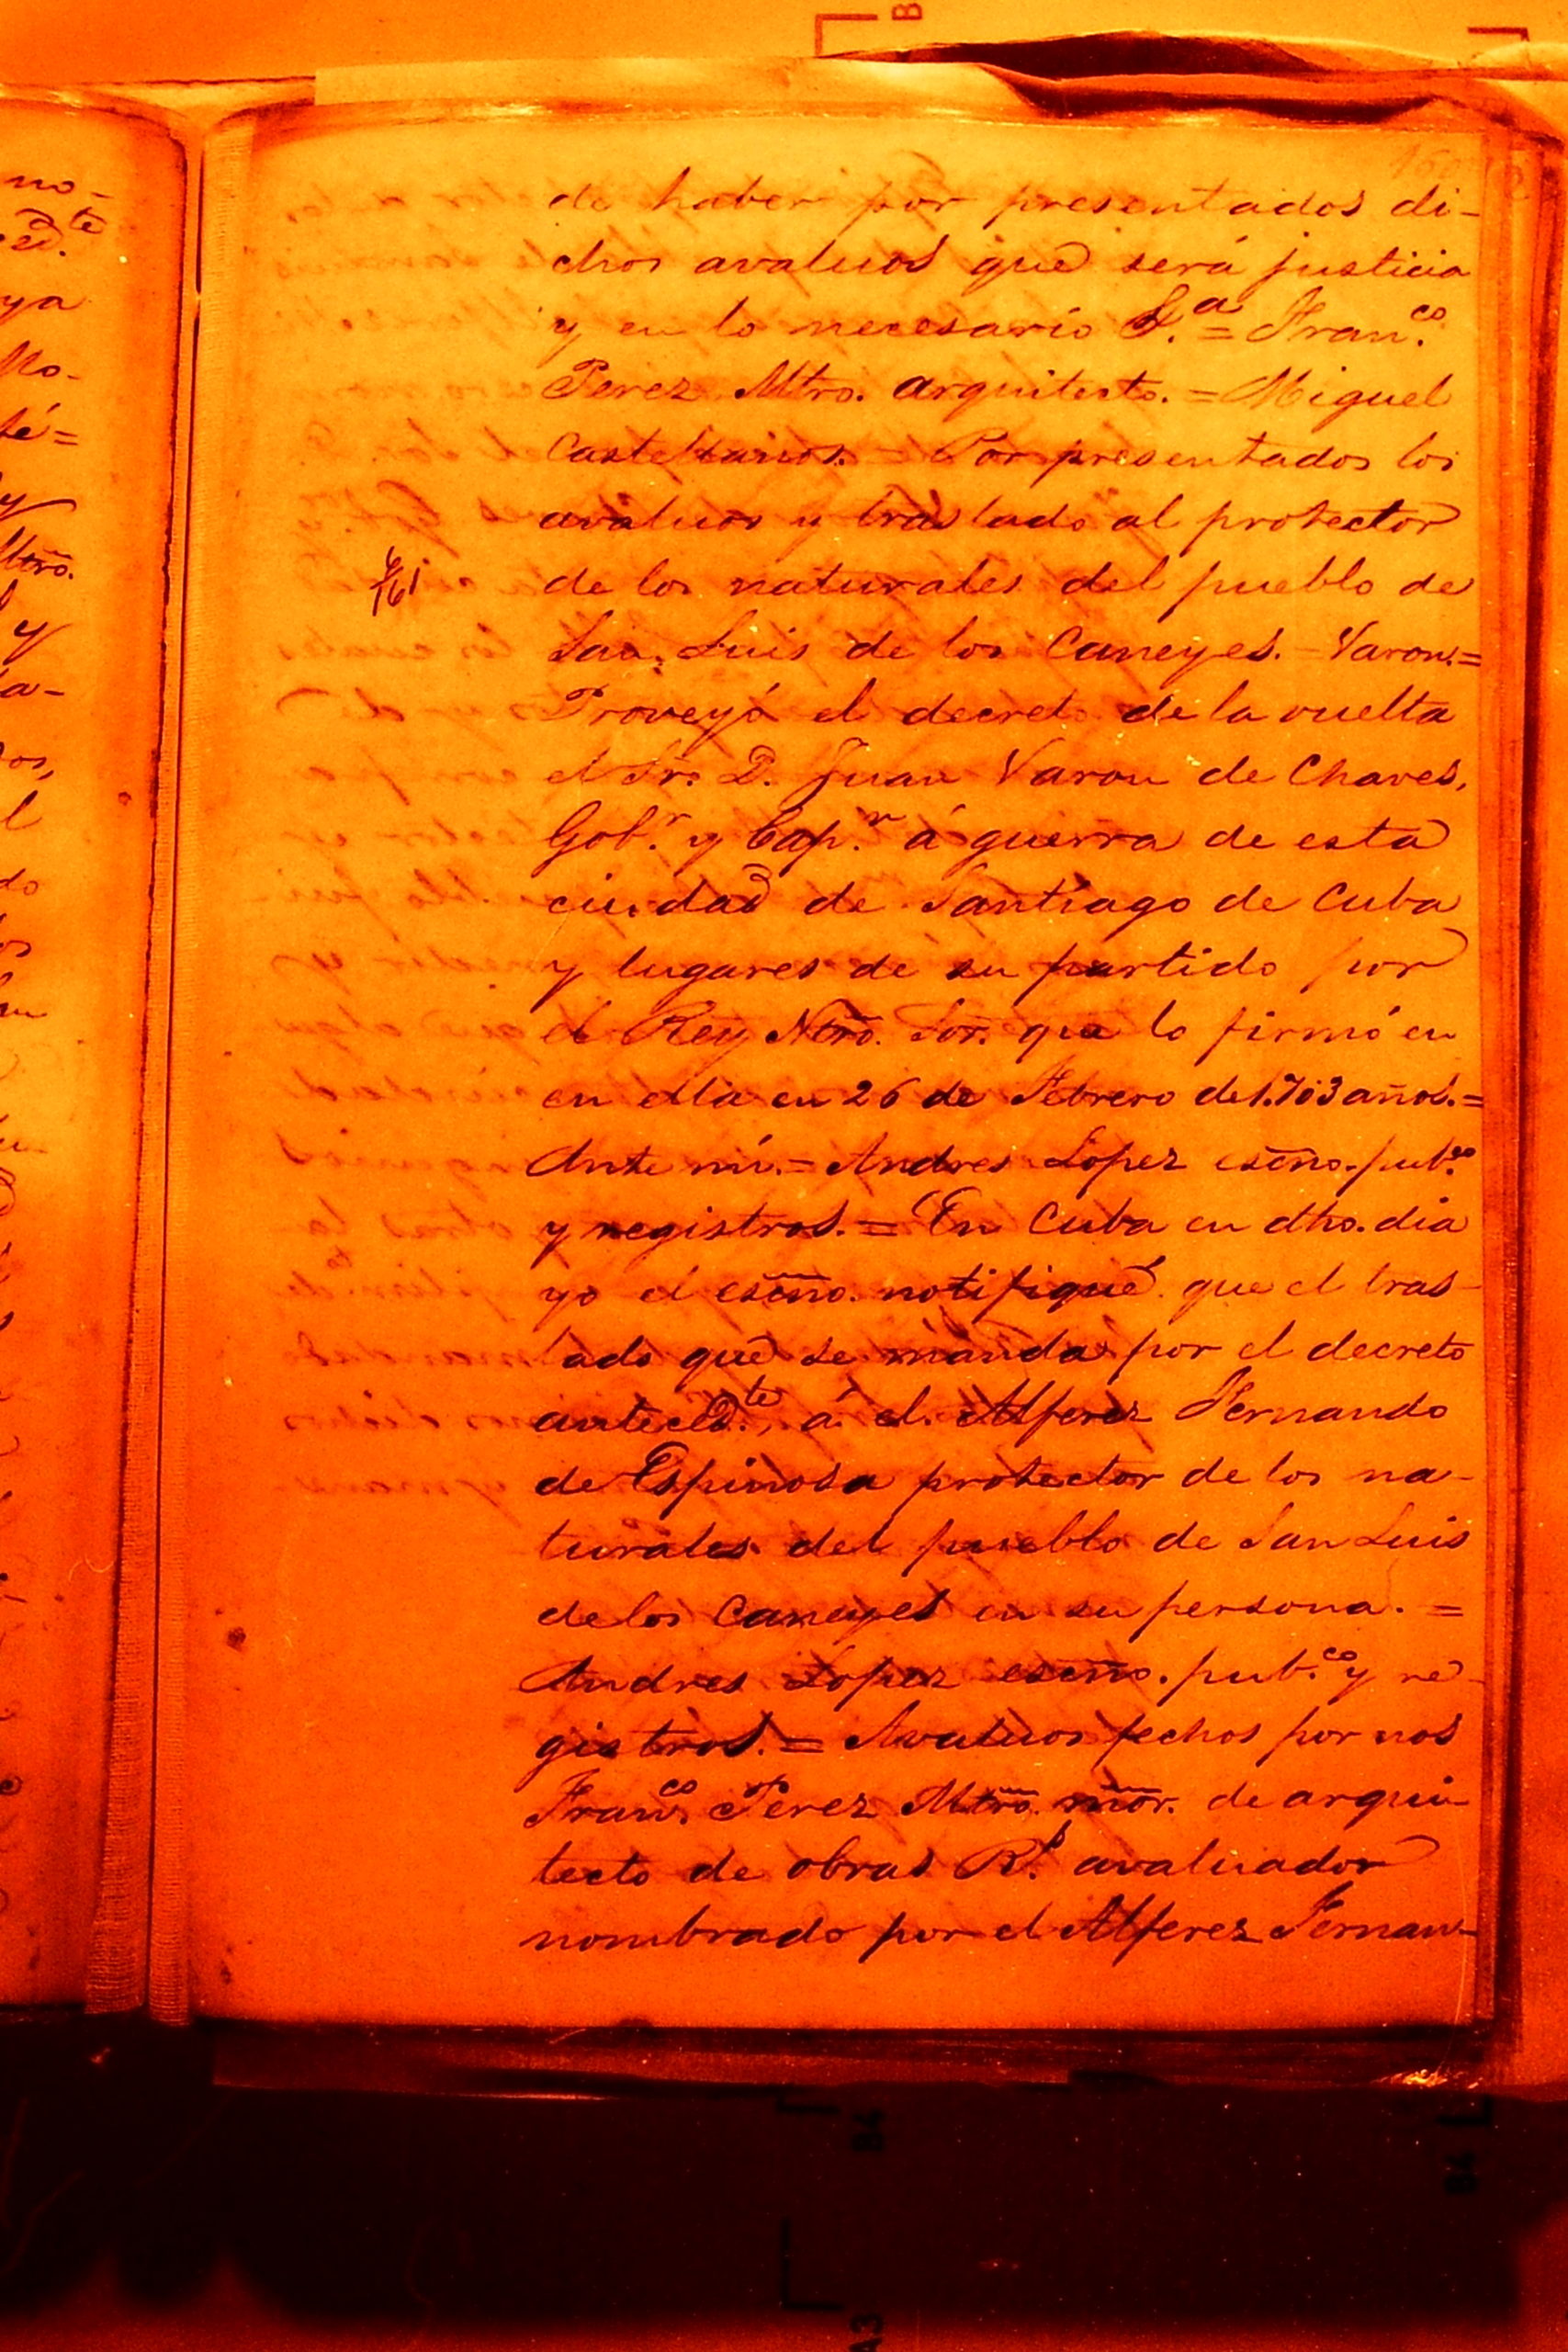 de haber por presentados di-
chos avaluos que será justicia
y en lo necesario &.ª = Fran.co
Perez Mtro. arquitecto. = Miguel
Castellanos. = Por presentados los
avaluos y traslado al protector
de los naturales del pueblo de
San Luis de los Caneyes. = Varon. =
Proveyó el decreto de la vuelta
el Sr. D. Juan Varon de Chaves,
Gob.r y Cap.n á guerra de esta
ciudad de Santiago de Cuba
y lugares de su partido por
el Rey Ntro. Sor. que lo firmó en
en ella en 26 de Febrero de 1.703 años. =
Ante mí. = Andres Lopez escño. pub.co
y registros. = En Cuba en dho. dia
yo el escño. notifiqué que el tras-
lado que se manda por el decreto
anteced.te, á el Alferez Fernando
de Espinosa protector de los na-
turales del pueblo de San Luis
de los Caneyes en su persona. =
Andres Lopez escño. pub.co y re-
gistros. = Avaluos fechos por nos
Fran.co Perez Mtro. mor. de arqui-
tecto de obras R.s avaluador
nombrado por el Alferez Fernan-
161
no-
te
ya
Mo-
fé=
y
Mtro.
y
a-
os,
l
do
os
B
B4
B4
A3